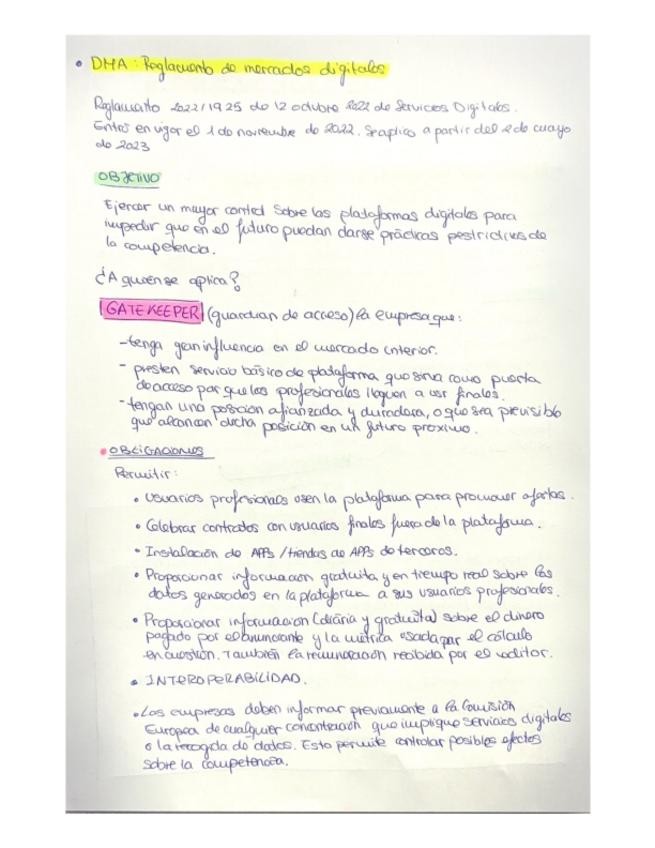 • DMA: Reglamento de mercados digitales
Reglamento 2022/1925 de 12 octubre 2022 de Servicios Digitales.
Entró en vigor el 1 de noviembre de 2022. Se aplica a partir del 2 de mayo
de 2023
OBJETIVO
Ejercer un mayor control sobre las plataformas digitales para
impedir que en el futuro puedan darse prácticas restrictivas de
la competencia.
¿A quién se aplica?
GATE KEEPER (guardian de acceso) la empresa que:
- tenga gran influencia en el mercado interior.
- presten servicio básico de plataforma que sirva como puerta
de acceso par que los profesionales lleguen a usr finales.
- tengan una posición afianzada y duradera, o que sea previsible
que alcancen dicha posición en un futuro próximo.
• OBLIGACIONES
Permitir:
• Usuarios profesionales usen la plataforma para promover ofertas.
• Celebrar contratos con usuarios finales fuera de la plataforma.
• Instalación de APPs / tiendas de APPs de terceros.
• Proporcionar información gratuita y en tiempo real sobre los
datos generados en la plataforma a sus usuarios profesionales.
• Proporcionar información (diaria y gratuita) sobre el dinero
pagado por el anunciante y la métrica usada par el cálculo
en cuestión. También la remuneración recibida por el editor.
• INTEROPERABILIDAD.
• Las empresas deben informar previamente a la Comisión
Europea de cualquier concentración que implique servicios digitales
o la recogida de datos. Esto permite controlar posibles efectos
sobre la competencia.